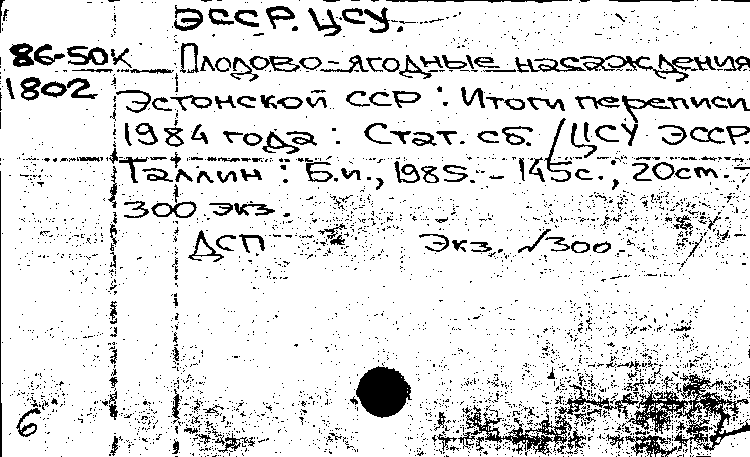 ЭССР. ЦСУ.
86-50к Плодово-ягодные насаждения
1802 Эстонской ССР : Итоги переписи
1984 года : Стат. сб. / ЦСУ ЭССР.
Таллин : Б.и., 1985. - 145с.; 20см. -
300 экз.
ДСП Экз. №300.
6